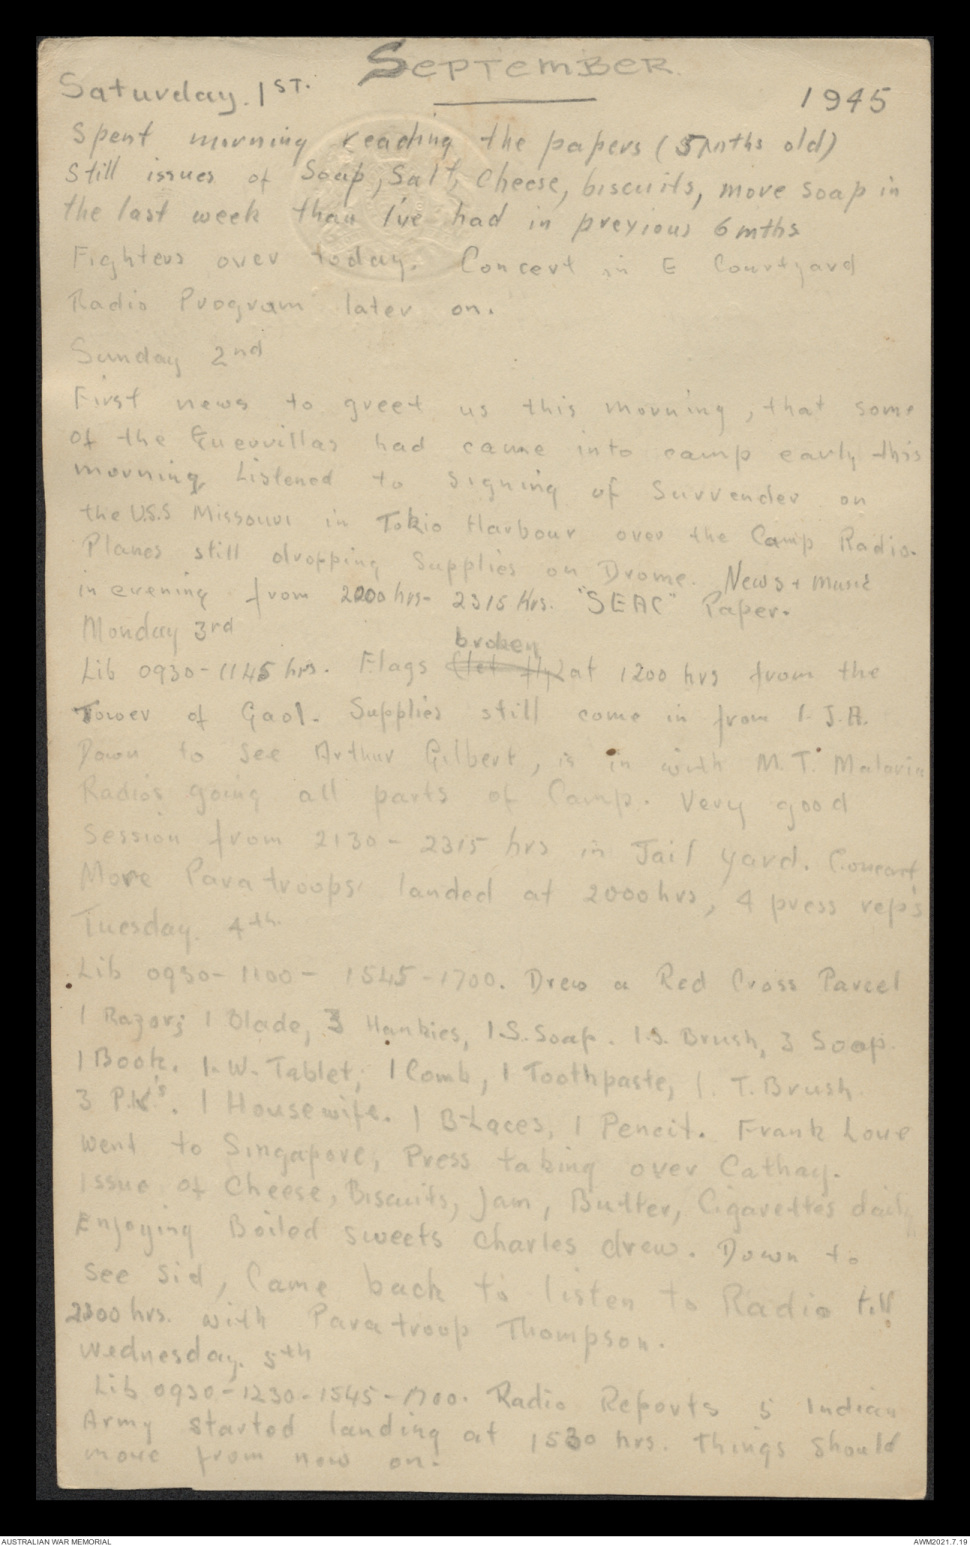 September
Saturday. 1ST. 1945
Spent morning reading the papers (5 mnths old)
Still issues of Soap, Salt, Cheese, biscuits, more soap in
the last week than I've had in previous 6 mths
Fighters over today. Concert in E Courtyard
Radio Program later on.
Sunday 2nd
First news to greet us this morning, that some
of the Guerrillas had came into camp early this
morning. Listened to signing of Surrender on
the U.S.S Missouri in Tokio Harbour over the Camp Radio.
Planes still dropping Supplies on Drome. News + music
in evening from 2000 hrs - 2315 Hrs. "SEAC" Paper.
Monday 3rd
broken
Lib 0930-1145 hrs. Flags (let fly) at 1200 hrs from the
Tower of Gaol. Supplies still come in from I.J.A.
Down to see Arthur Gilbert, is in with M.T. Malaria
Radios going all parts of Camp. Very good
Session from 2130 - 2315 hrs in Jail yard. Concert
More Paratroops landed at 2000 hrs, 4 press rep's
Tuesday. 4th.
Lib 0930 - 1100 - 1545 - 1700. Drew a Red Cross Parcel
1 Razor; 1 Blade, 3 Hankies, 1 S. Soap. 1.S. Brush, 3 Soap.
1 Book. 1. W. Tablet; 1 Comb, 1 Toothpaste, 1. T. Brush.
3 P.K's. 1 Housewife. 1 B-Laces, 1 Pencil. Frank Love
went to Singapore, Press taking over Cathay.
Issue of Cheese, Biscuits, Jam, Butter, Cigarettes daily
Enjoying Boiled sweets Charles drew. Down to
see Sid, Came back to listen to Radio till
2300 hrs. with Paratroop Thompson.
Wednesday. 5th
Lib 0930-1230-1545-1700. Radio Reports 5 Indian
Army started landing at 1530 hrs. Things should
move from now on.
AUSTRALIAN WAR MEMORIAL AWM2021.7.19